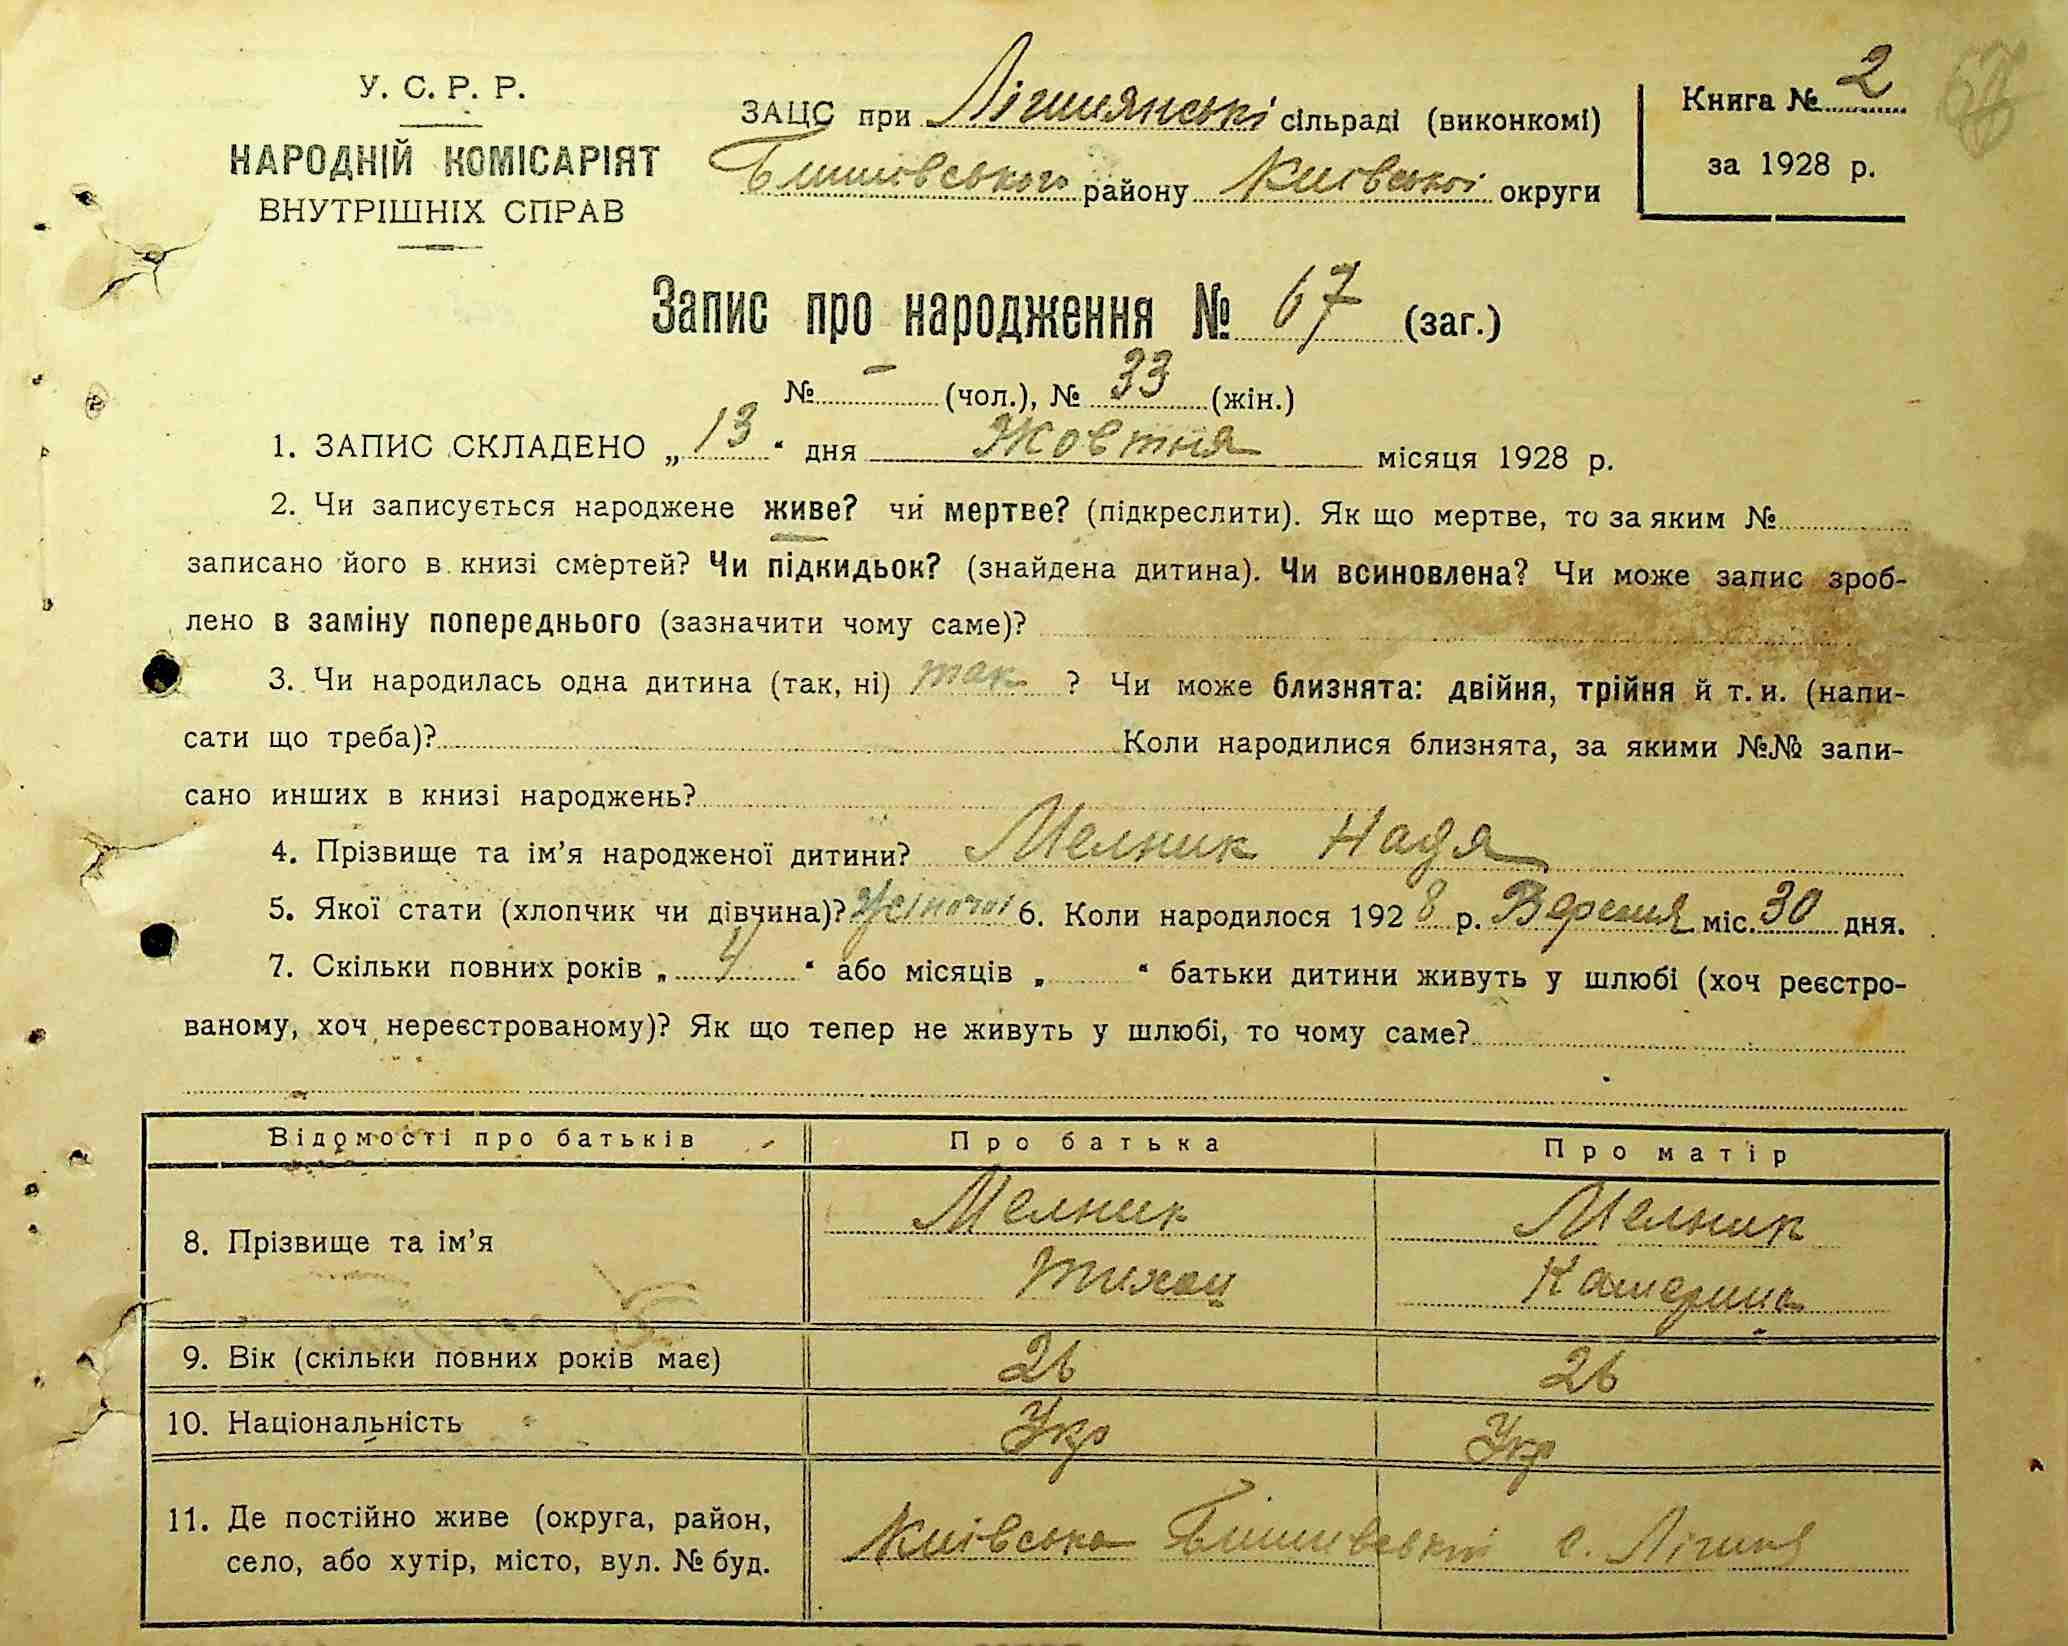 У. С. Р. Р.
НАРОДНІЙ КОМІСАРІЯТ
ВНУТРІШНІХ СПРАВ
ЗАЦС при сільраді (виконкомі)
району Київської округи
Книга № 2
за 1928 р.
Запис про народження № 67 (заг.)
№ – (чол.), № 33 (жін.)
1. ЗАПИС СКЛАДЕНО „ 13 “ дня Жовтня місяця 1928 р.
2. Чи записується народжене живе? чи мертве? (підкреслити). Як що мертве, то за яким №
записано його в книзі смертей? Чи підкидьок? (знайдена дитина). Чи всиновлена? Чи може запис зроб-
лено в заміну попереднього (зазначити чому саме)?
3. Чи народилась одна дитина (так, ні) так ? Чи може близнята: двійня, трійня й т. и. (напи-
сати що треба)? Коли народилися близнята, за якими №№ запи-
сано инших в книзі народжень?
4. Прізвище та ім’я народженої дитини? Мелник Надя
5. Якої стати (хлопчик чи дівчина)? жіночої 6. Коли народилося 1928 р. Вересня міс. 30 дня.
7. Скільки повних років „ 4 “ або місяців „ “ батьки дитини живуть у шлюбі (хоч реєстро-
ваному, хоч нереєстрованому)? Як що тепер не живуть у шлюбі, то чому саме?
Відомості про батьків Про батька Про матір
8. Прізвище та ім’я Мелник Мелник
Тихон Катерина
9. Вік (скільки повних років має) 26 26
10. Національність Укр Укр
11. Де постійно живе (округа, район,
село, або хутір, місто, вул. № буд. Київська с.